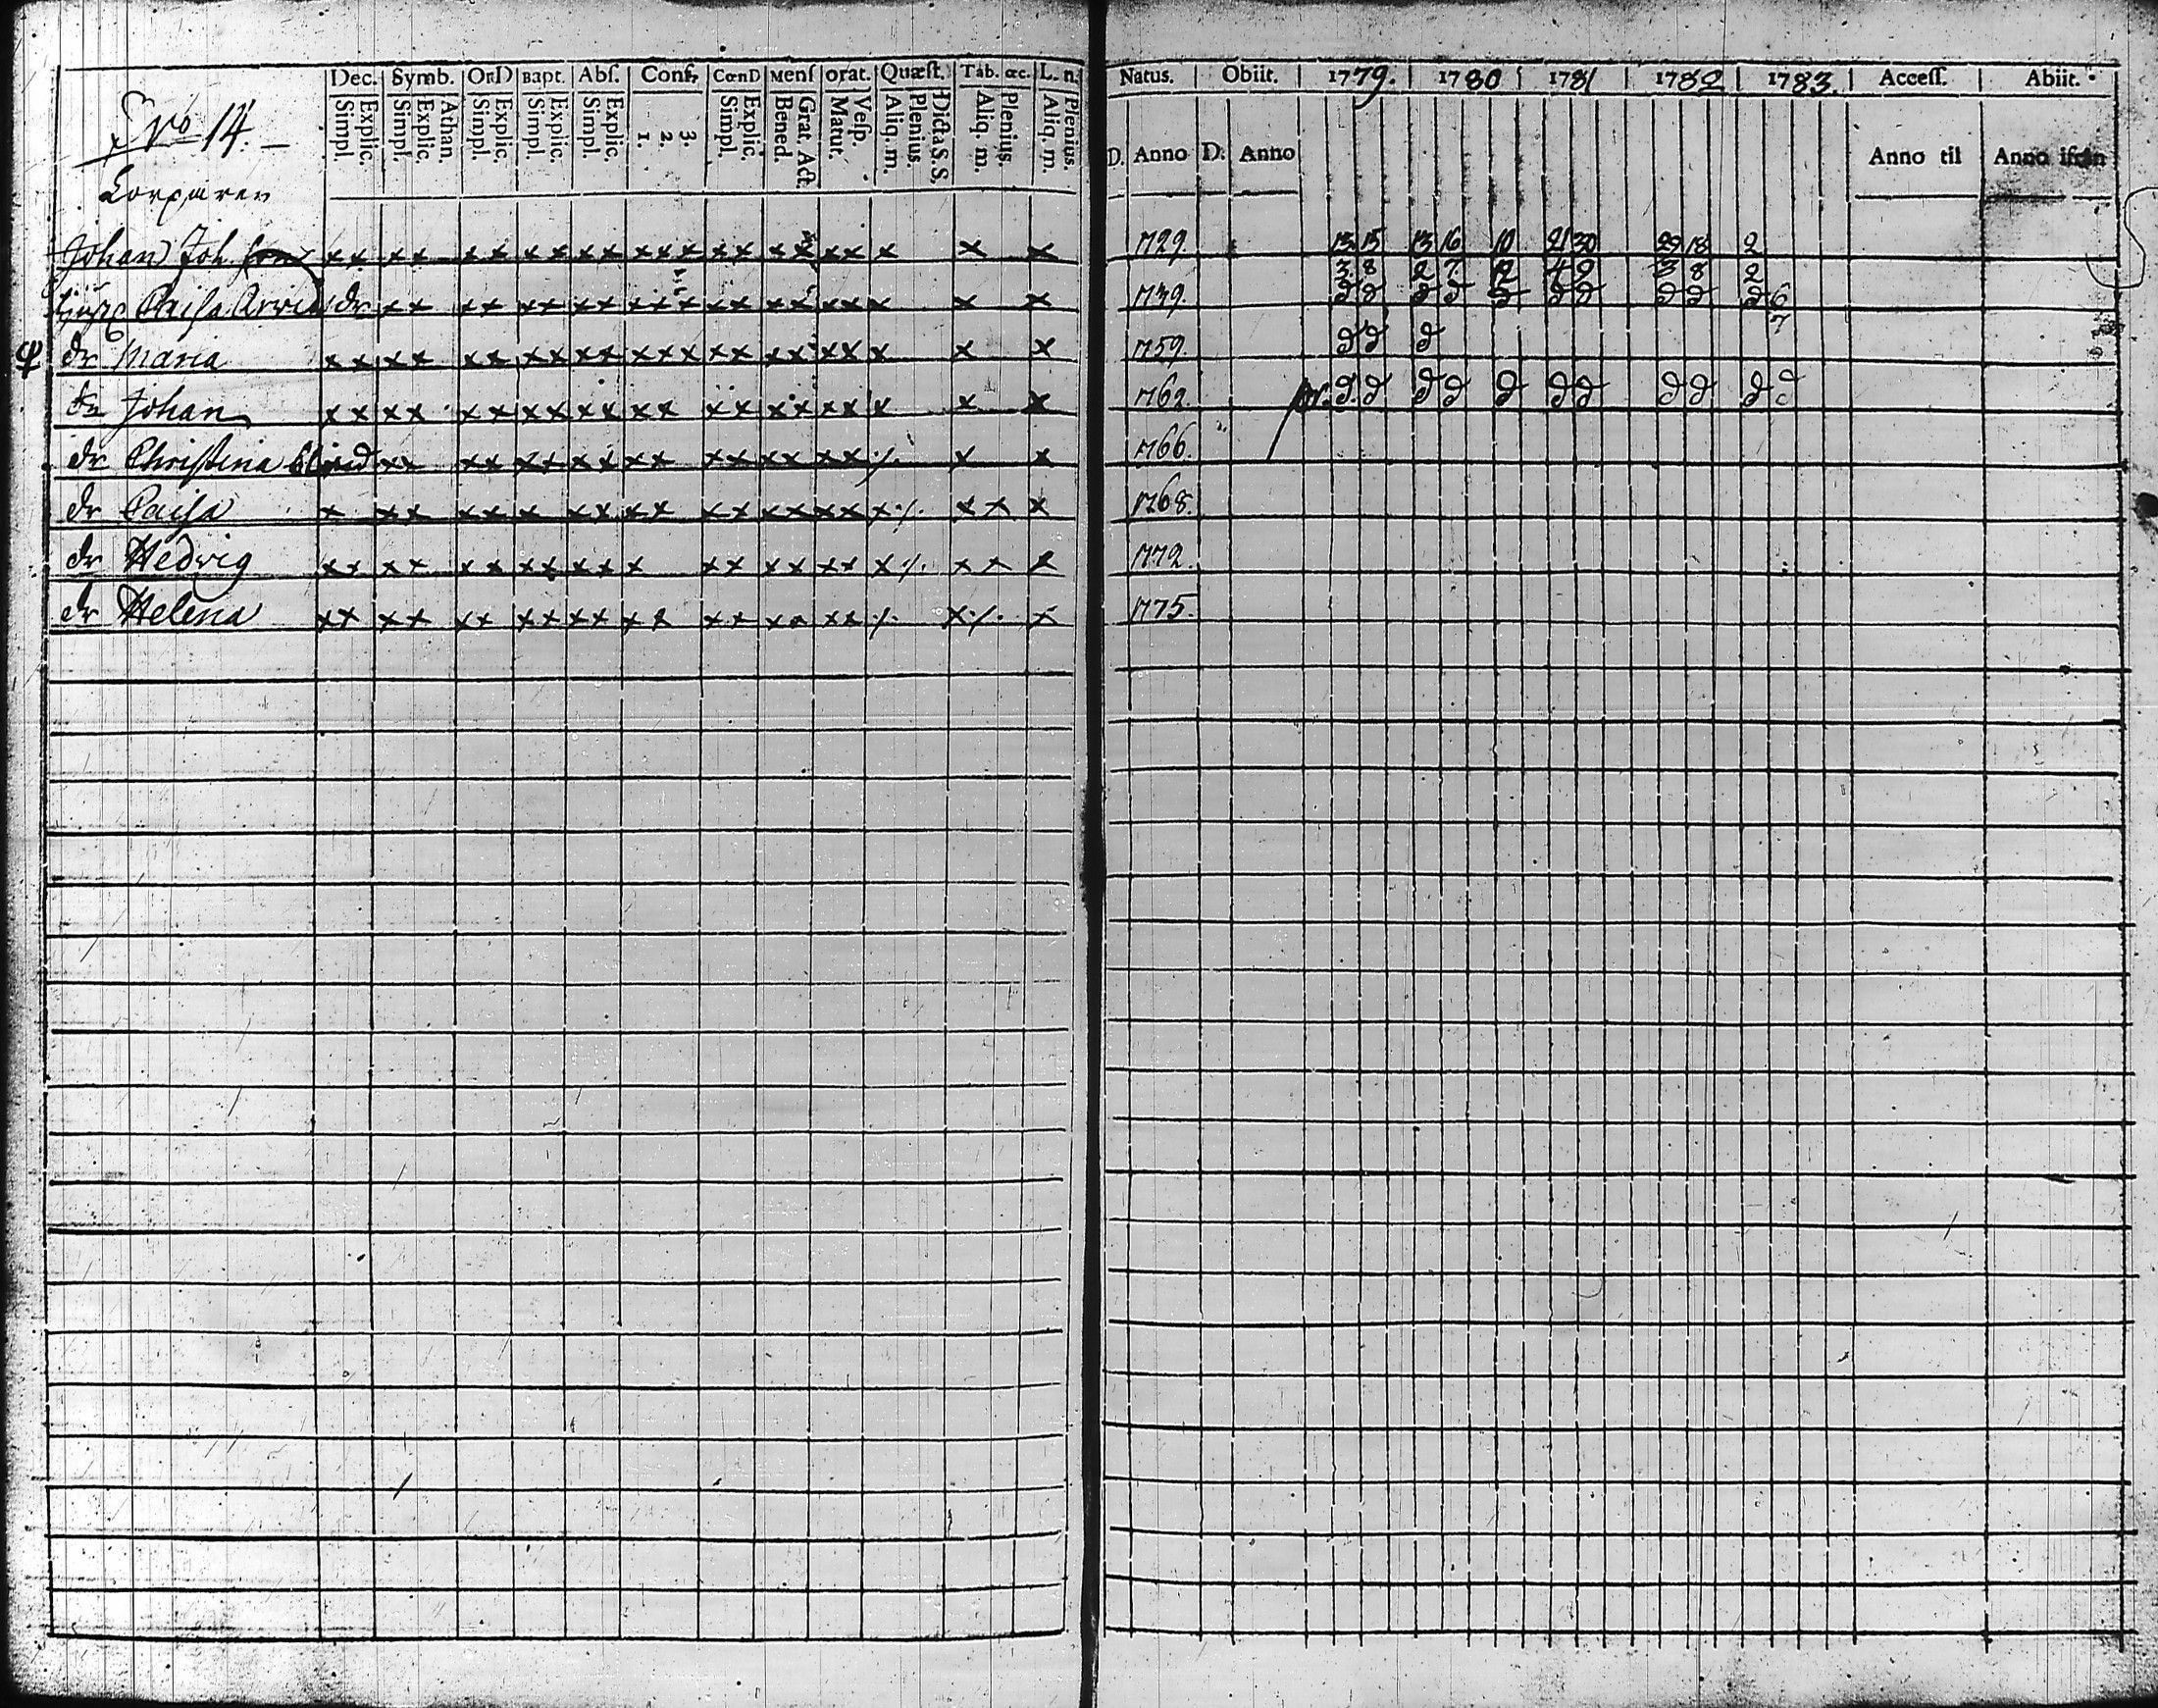 Dec. Symb. OrD Bapt. Abſ. Conf, CœnD Menſ orat. Quæſt. Tab. œc. L. n.
Simpl. Explic. Simpl. Explic. Athan. Simpl. Explic. Simpl. Explic. Simpl. Explic. 1. 2. 3. Simpl. Explic. Bened. Grat. Act. Matut. Veſp. Aliq. m. Plenius. Dicta S. S. Aliq. m. Plenius. Aliq. m. Plenius.
Natus. Obiit. 1779. 1780 1781 1782 1783. Acceſſ. Abiit.
D. Anno D. Anno Anno til Anno ifrån
No 14.
Johan Joh. x x x x x x x x x x x x x x x x x x x x x x 1729. 13 15 13 16 10 21 30 29 18 2
Caisa dr x x x x x x x x x x x x x x x x x x x x 1739. 3 8 2 7 12 4 9 3 8 2
dr Maria x x x x x x x x x x x x x x x x x x x x x x 1759.
dr Johan x x x x x x x x x x x x x x x x x x x x x 1762.
dr Christina blind x x x x x x x x x x x x x x x x ./. x x 1766.
dr Caisa x x x x x x x x x x x x x x x x x ./. x x x 1768.
dr Hedvig x x x x x x x x x x x x x x x x x x ./. x x x 1772.
dr Helena x x x x x x x x x x x x x x x x x x ./. x ./. x 1775.